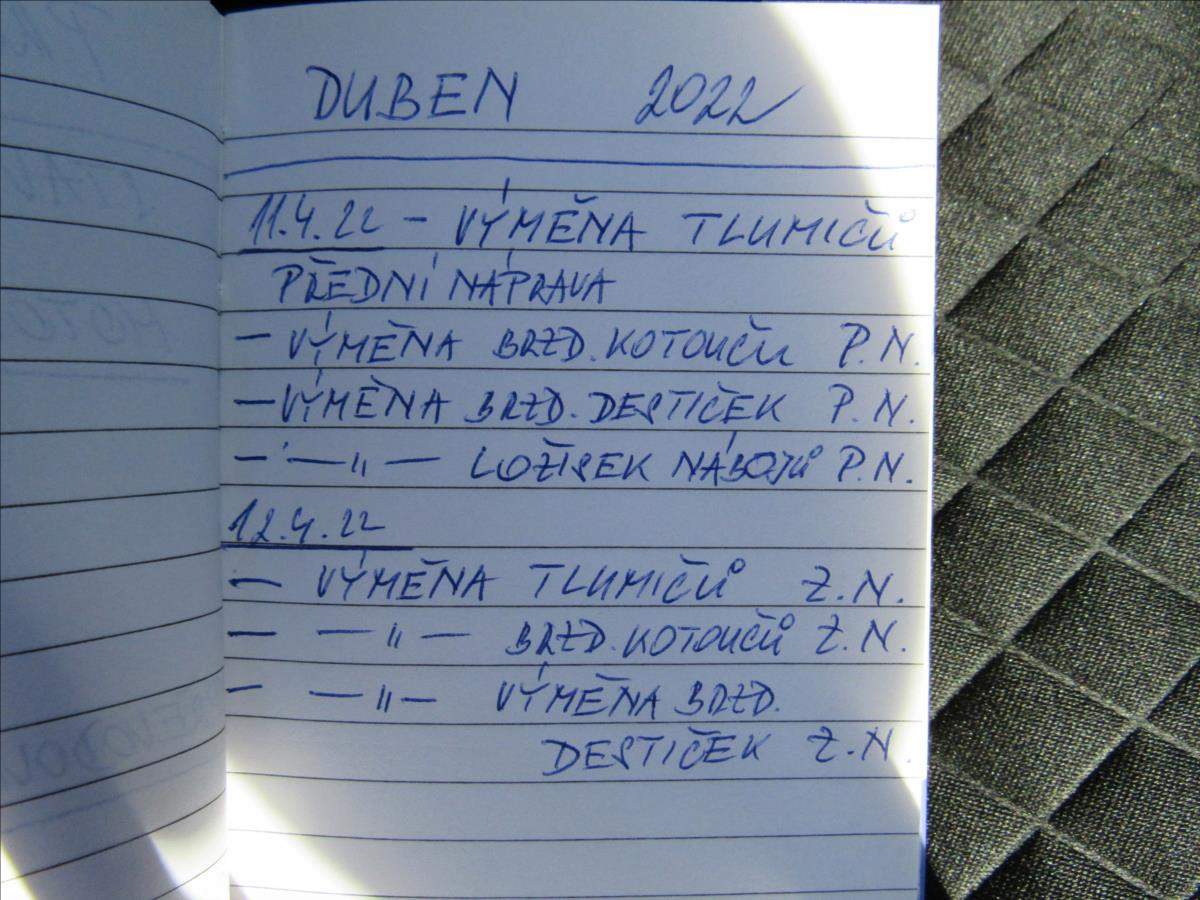 DUBEN 2022
11.4.22 - VÝMĚNA TLUMIČŮ
PŘEDNÍ NÁPRAVA
- VÝMĚNA BRZD. KOTOUČŮ P.N.
- VÝMĚNA BRZD. DESTIČEK P.N.
- —〃— LOŽISEK NÁBOJŮ P.N.
12.4.22
- VÝMĚNA TLUMIČŮ Z.N.
- —〃— BRZD. KOTOUČŮ Z.N.
- —〃— VÝMĚNA BRZD.
DESTIČEK Z.N.